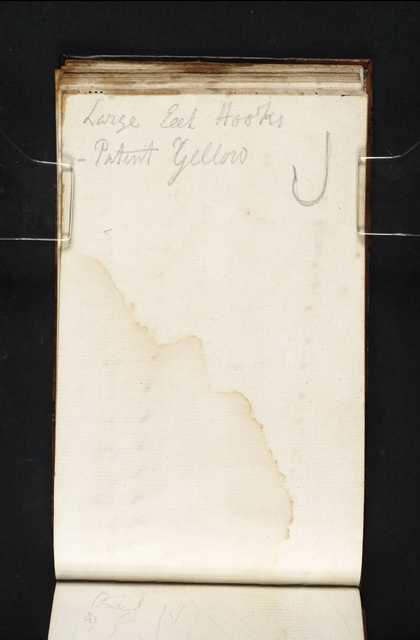 Large Eel Hooks
- Patent Yellow